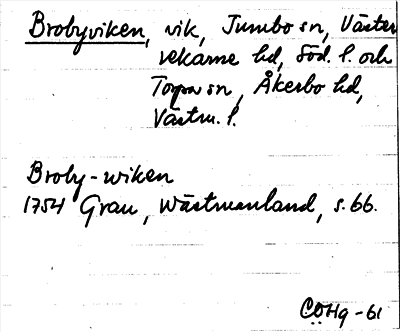 Brobyviken, vik, Jumbo sn, Väster
rekarne hd, Söd. l. och
Torpa sn, Åkerbo hd,
Västm. l.
Broby-wiken
1754 Grau, Wästmanland, s. 66.
CÖHg -61